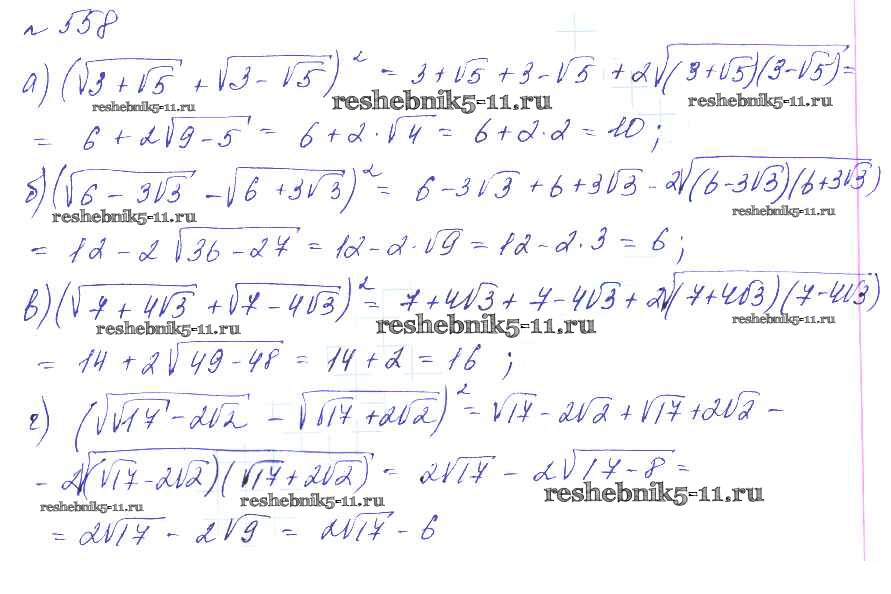 № 558
а) (√(3 + √5) + √(3 - √5))² = 3 + √5 + 3 - √5 + 2√((3 + √5)(3 - √5)) =
reshebnik5-11.ru reshebnik5-11.ru reshebnik5-11.ru
= 6 + 2√(9 - 5) = 6 + 2 · √4 = 6 + 2 · 2 = 10 ;
б) (√(6 - 3√3) - √(6 + 3√3))² = 6 - 3√3 + 6 + 3√3 - 2√((6 - 3√3)(6 + 3√3))
reshebnik5-11.ru reshebnik5-11.ru
= 12 - 2√(36 - 27) = 12 - 2 · √9 = 12 - 2 · 3 = 6 ;
в) (√(7 + 4√3) + √(7 - 4√3))² = 7 + 4√3 + 7 - 4√3 + 2√((7 + 4√3)(7 - 4√3))
reshebnik5-11.ru reshebnik5-11.ru reshebnik5-11.ru
= 14 + 2√(49 - 48) = 14 + 2 = 16 ;
г) (√(√17 - 2√2) - √(√17 + 2√2))² = √17 - 2√2 + √17 + 2√2 -
- 2√((√17 - 2√2)(√17 + 2√2)) = 2√17 - 2√(17 - 8) =
reshebnik5-11.ru reshebnik5-11.ru reshebnik5-11.ru
= 2√17 - 2√9 = 2√17 - 6